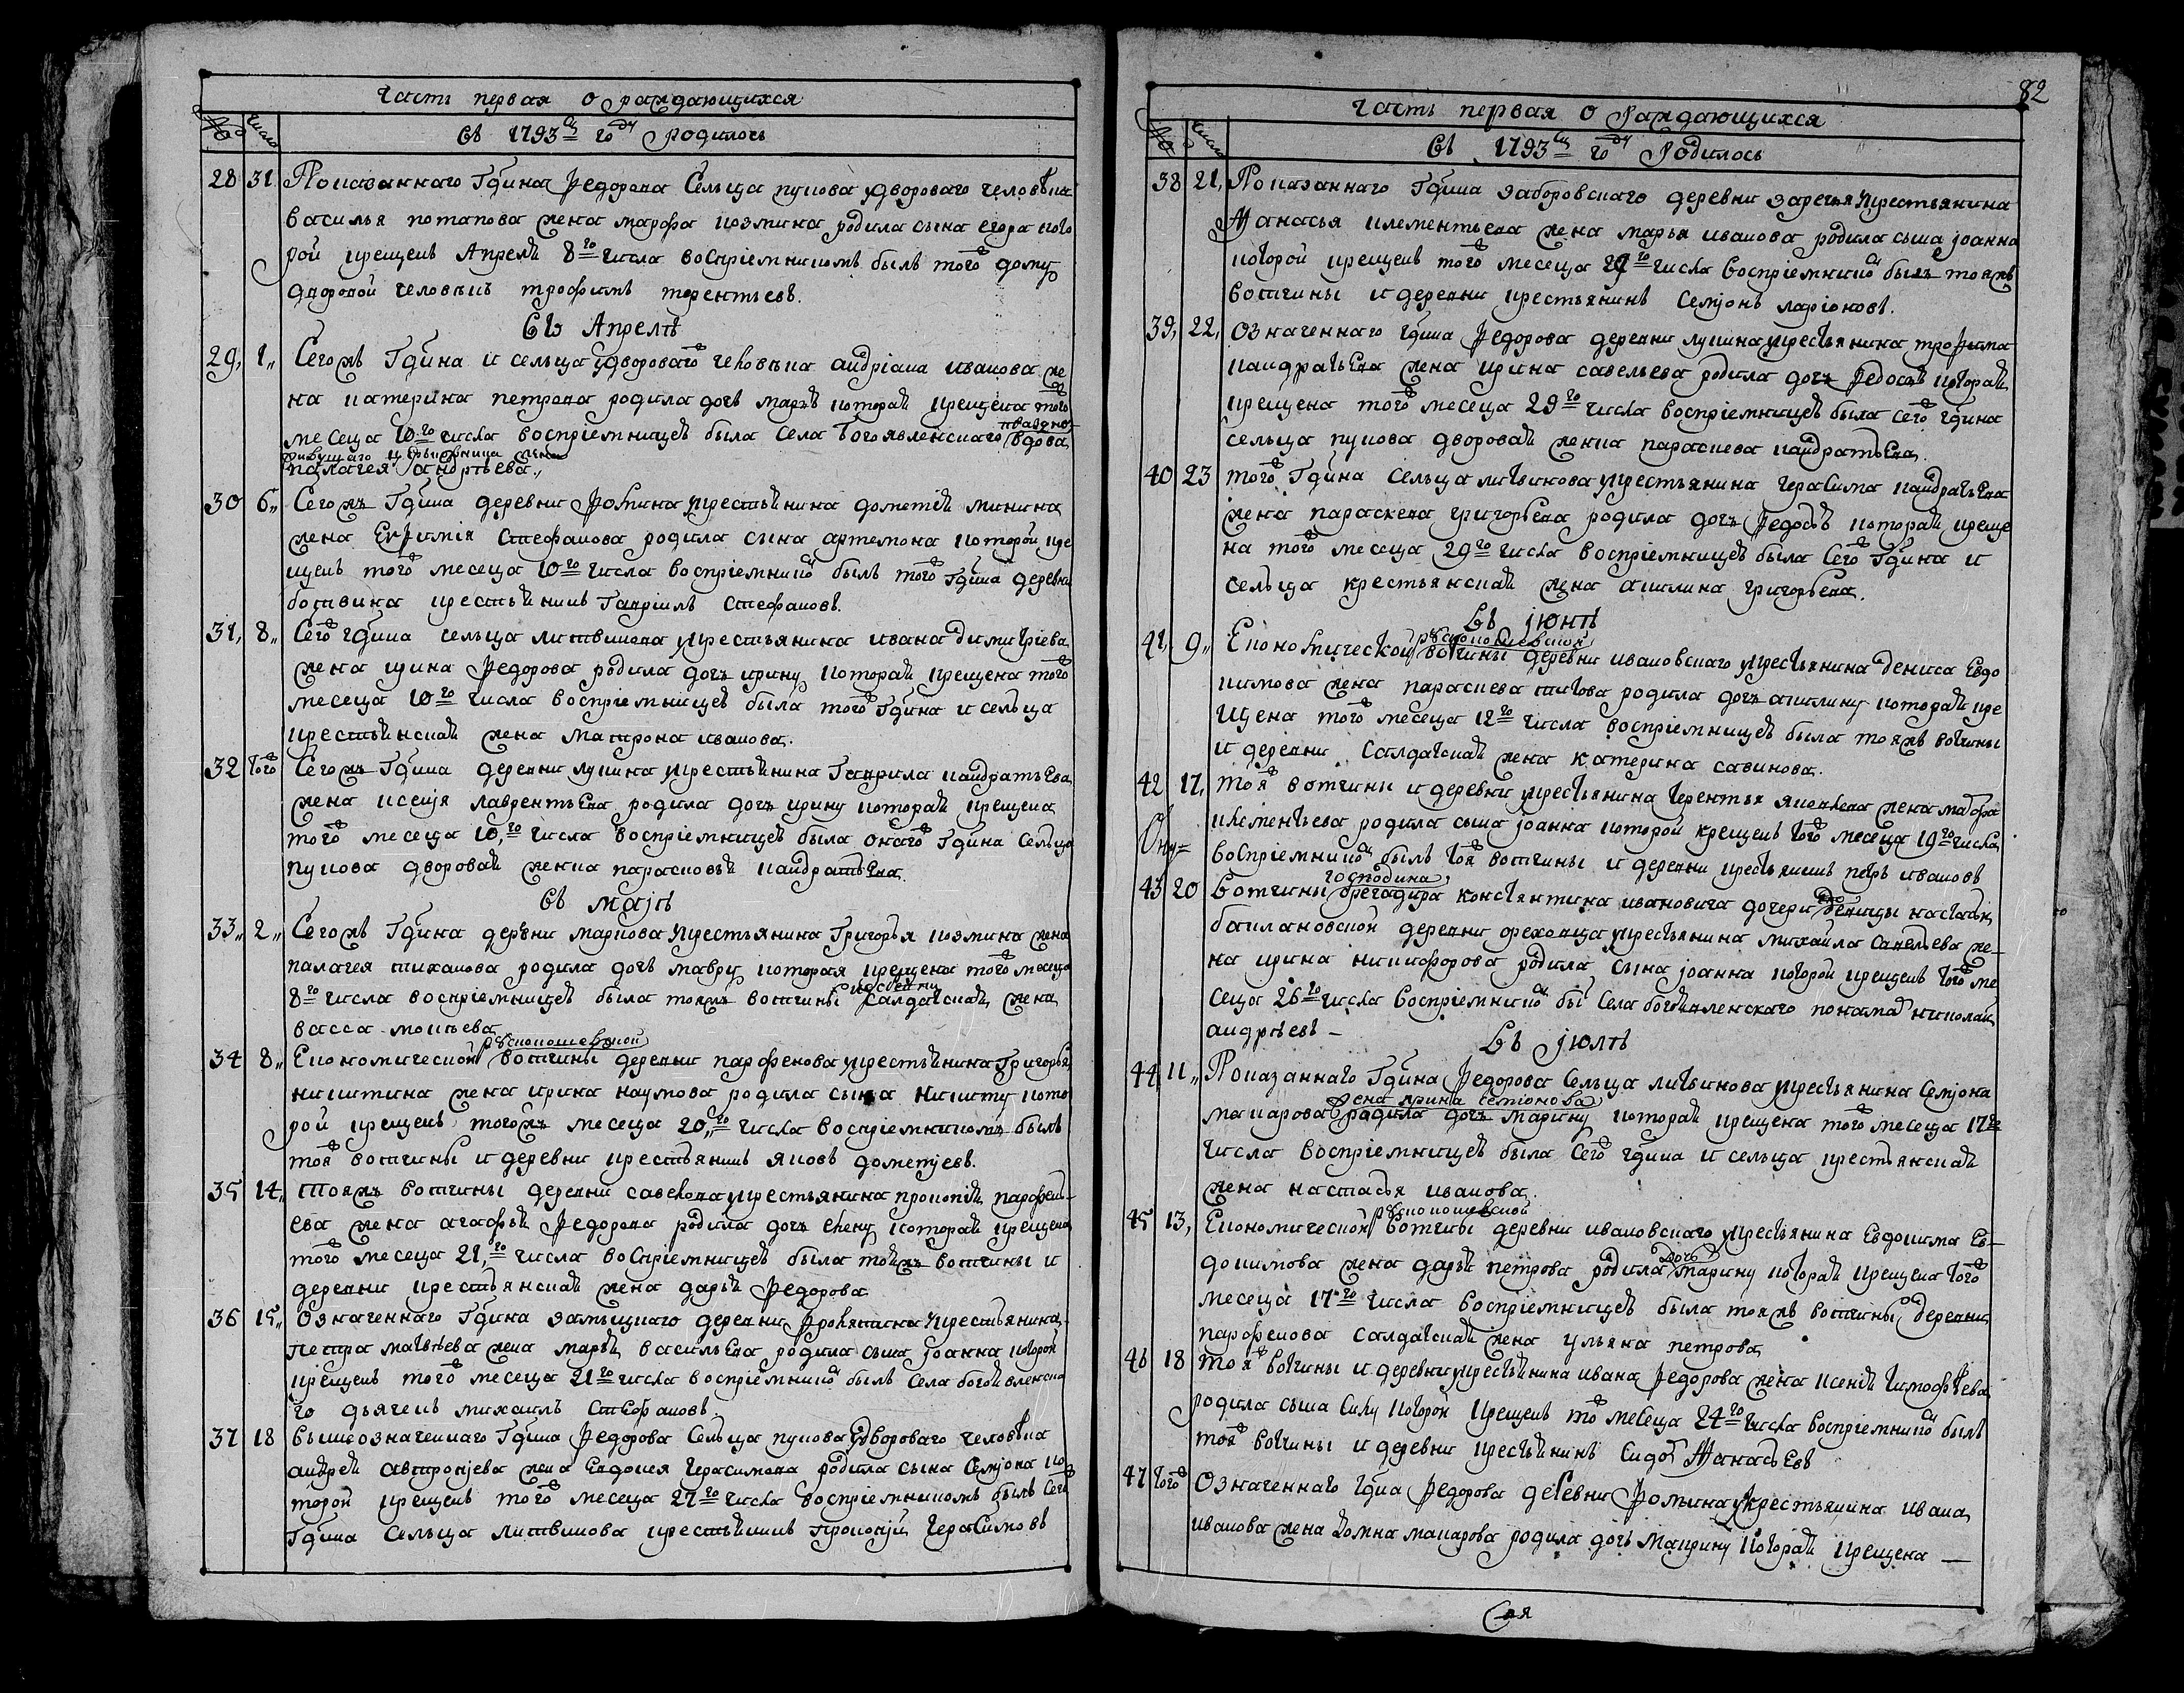 Часть первая о раждающихся
№ число
Въ 1793м году родилось
28 31 Показаннаго Гдина Федорова Сельца пунова дворового человѣка
василья потапова жена марфа козмина родила сына егора кото
рой крещенъ Апреля 8го числа воспріемникомъ былъ того дому
дворовой человѣкъ трофимъ терентьевъ.
Въ Апрелѣ
29, 1„ Сегожъ Гдина и сельца дворового человѣка андріана иванова же
на катерина петрова родила дочь марью которая крещена тогож
месеца 10го числа воспріемницею была села богоявленскаго вдова
живущаго жена
палагея андрѣева„
30 6„ Сегожъ Гдина деревни фомина крестьянина дометия минина
жена Евфимія Стефанова родила сына артемона которой кре
щенъ того месеца 10го числа воспріемником былъ того Гдина деревни
ботвина крестьянинъ Гавріилъ Стефановъ.
31, 8„ Сего гдина сельца литвинова крестьянина ивана димитріева
жена ирина Федорова родила дочь ирину которая крещена того
месеца 10го числа воспріемницею была того Гдина и сельца
крестьянская жена матрона иванова.
32 того Сегожъ Гдина деревни лунина крестьянина Гаврила кандратьева
жена ксенія лаврентьева родила дочь ирину которая крещена
того месеца 10,го числа воспріемницею была онаго Гдина Сельца
пунова дворовая женка парасковья кандратьева
Въ маіѣ
33„ 2„ Сегожъ Гдина деревни маркова крестьянина Григорья козмина жена
палагея тиханова родила дочь мавру которая крещена того месеца
8го числа воспріемницею была тояжъ вотчины и деревни салдатская жена
васса мокѣева
34 8„ Економической вотчины деревни парфенова крестьянина Григорья
никитина жена ирина наумова родила сына никиту кото
рой крещенъ тогожъ месеца 20„го числа воспріемникомъ былъ
тоя вотчины и деревни крестьянинъ яковъ дометіевъ.
35 14„ Тояжъ вотчины деревни савелова крестьянина прокопія парфень-
ева жена агафья Федорова родила дочь елену которая крещена
того месеца 21,го числа воспріемницею была тояжъ вотчины и
деревни крестьянская жена дарья Федорова
36 15„ Означеннаго Гдина замыцкаго деревни крестьянина
петра матвѣева жена марья васильева родила сына Іоанна которой
крещенъ того месеца 21го числа воспріемником былъ Села богоявленска
го дьячекъ михаилъ Стефановъ
37 18 вышеозначеннаго Гдина Федорова Сельца пунова дворового человѣка
андрея автроніева жена Евдокея Герасимова родила сына Семіона ко
торой крещенъ того месеца 27го числа воспріемникомъ былъ Сего
Гдина Сельца литвинова крестьянинъ прокопій Герасимовъ
82
Часть первая о Раждающихся
№ число
Въ 1793м году Родилось
38 21, Показаннаго Гдина заборовскаго деревни заречья крестьянина
Афанасья клементьева жена марья иванова родила сына Іоанна
которой крещенъ того месеца 29го числа воспріемником былъ тояжъ
вотчины и деревни крестьянинъ Семіонъ ларіоновъ.
39, 22, Означеннаго гдина Федорова деревни лунина крестьянина трофима
кандратьева жена ирина савельева родила дочь Федосью которая
крещена того месеца 29го числа воспріемницею была сего гдина
сельца пунова дворовая женка параскева кандратьева
40 23 того Гдина сельца литвинова крестьянина Герасима кандратьева
жена параскева григорьева родила дочь Федосью которая креще
на того месеца 29го числа воспріемницею была Сего Гдина и
сельца крестьянская жена акилина григорьева.
Въ Іюнѣ
41, 9„ Економической вотчины деревни ивановскаго крестьянина дениса Евдо
кимова жена параскева титова родила дочь акилину которая кре
щена того месеца 12го числа воспріемницею была тояжъ вотчины
и деревни салдатская жена катерина савинова.
42 17, тоя вотчины и деревни крестьянина терентья яковлева жена марфа
клементьева родила сына Іоанна которой крещенъ того месеца 19го числа
воспріемником былъ тоя вотчины и деревни крестьянинъ петръ ивановъ
43 20 Вотчины господина брегадира константина ивановича дочери девицы настасьи
баклановской деревни крестьянина михайла савельева же-
на ирина никифорова родила сына Іоанна которой крещенъ того ме
сеца 26го числа воспріемником бы села богоявленскаго понамарь николай
андрѣевъ –
Въ Іюлѣ
44, 11„ Показаннаго Гдина Федорова Сельца литвинова крестьянина Семіона
макарова жена ирина семіонова родила дочь марину которая крещена того месеца 17го
числа воспріемницею была Сего гдина и сельца крестьянская
жена настасья иванова.
45 13, Економической вотчины деревни ивановскаго крестьянина Евдокима Ев-
докимова жена дарья петрова родила дочь марину которая крещена того
месеца 17го числа воспріемницею была тояжъ вотчины деревни
парфенова салдатская жена ульяна петрова
46 18 тоя вотчины и деревни крестьянина ивана Федорова жена ксения тимофѣева
родила сына силу которой крещенъ того месеца 24го числа воспріемником былъ
тоя вотчины и деревни крестьянинъ Сидоръ Афанасьевъ
47 того Означеннаго гдина Федорова деревни Фомина крестьянина ивана
иванова жена домна макарова родила дочь макрину которая крещена —